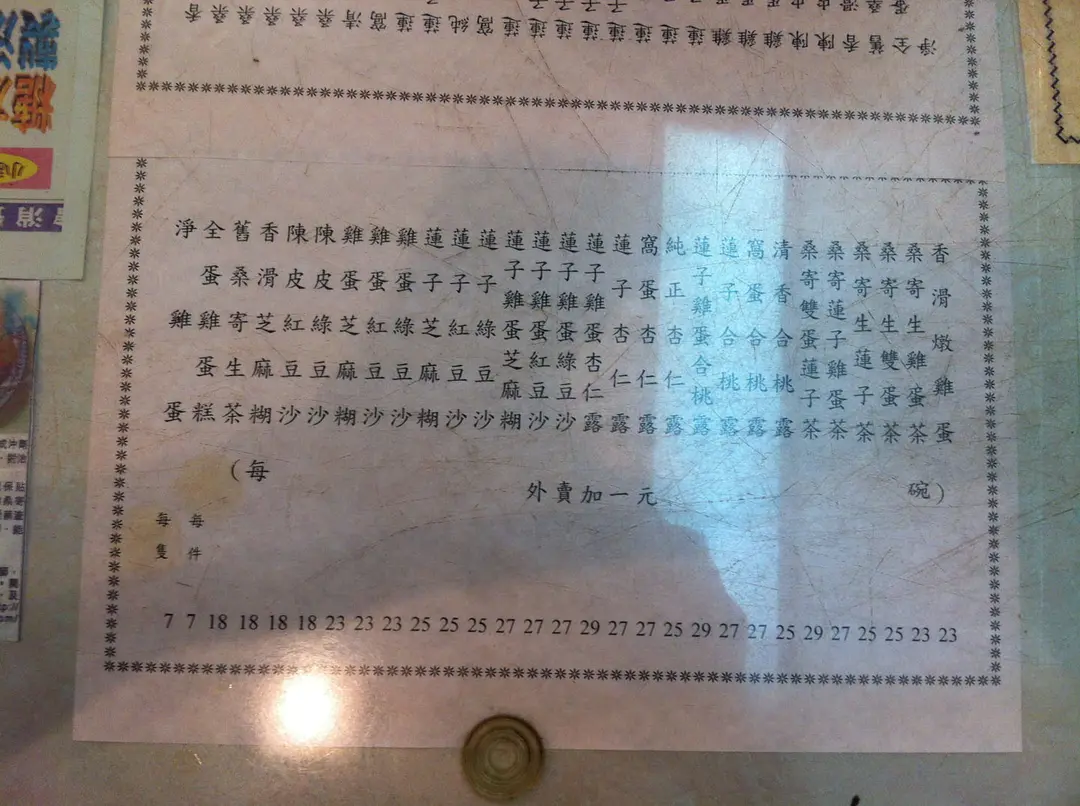 香滑燉雞蛋 23
桑寄生雞蛋茶 23
桑寄生雙蛋茶 25
桑寄生蓮子茶 25
桑寄蓮子雞蛋茶 27
桑寄雙蛋蓮子茶 29
清香合桃露 25
窩蛋合桃露 27
蓮子合桃露 27
蓮子雞蛋合桃露 29
純正杏仁露 25
窩蛋杏仁露 27
蓮子杏仁露 27
蓮子雞蛋杏仁露 29
蓮子雞蛋綠豆沙 27
蓮子雞蛋紅豆沙 27
蓮子雞蛋芝麻糊 27
蓮子綠豆沙 25
蓮子紅豆沙 25
蓮子芝麻糊 25
雞蛋綠豆沙 23
雞蛋紅豆沙 23
雞蛋芝麻糊 23
陳皮綠豆沙 18
陳皮紅豆沙 18
香滑芝麻糊 18
舊桑寄生茶 18
全蛋雞蛋糕 每件 7
淨雞蛋 每隻 7
(每碗)
外賣加一元